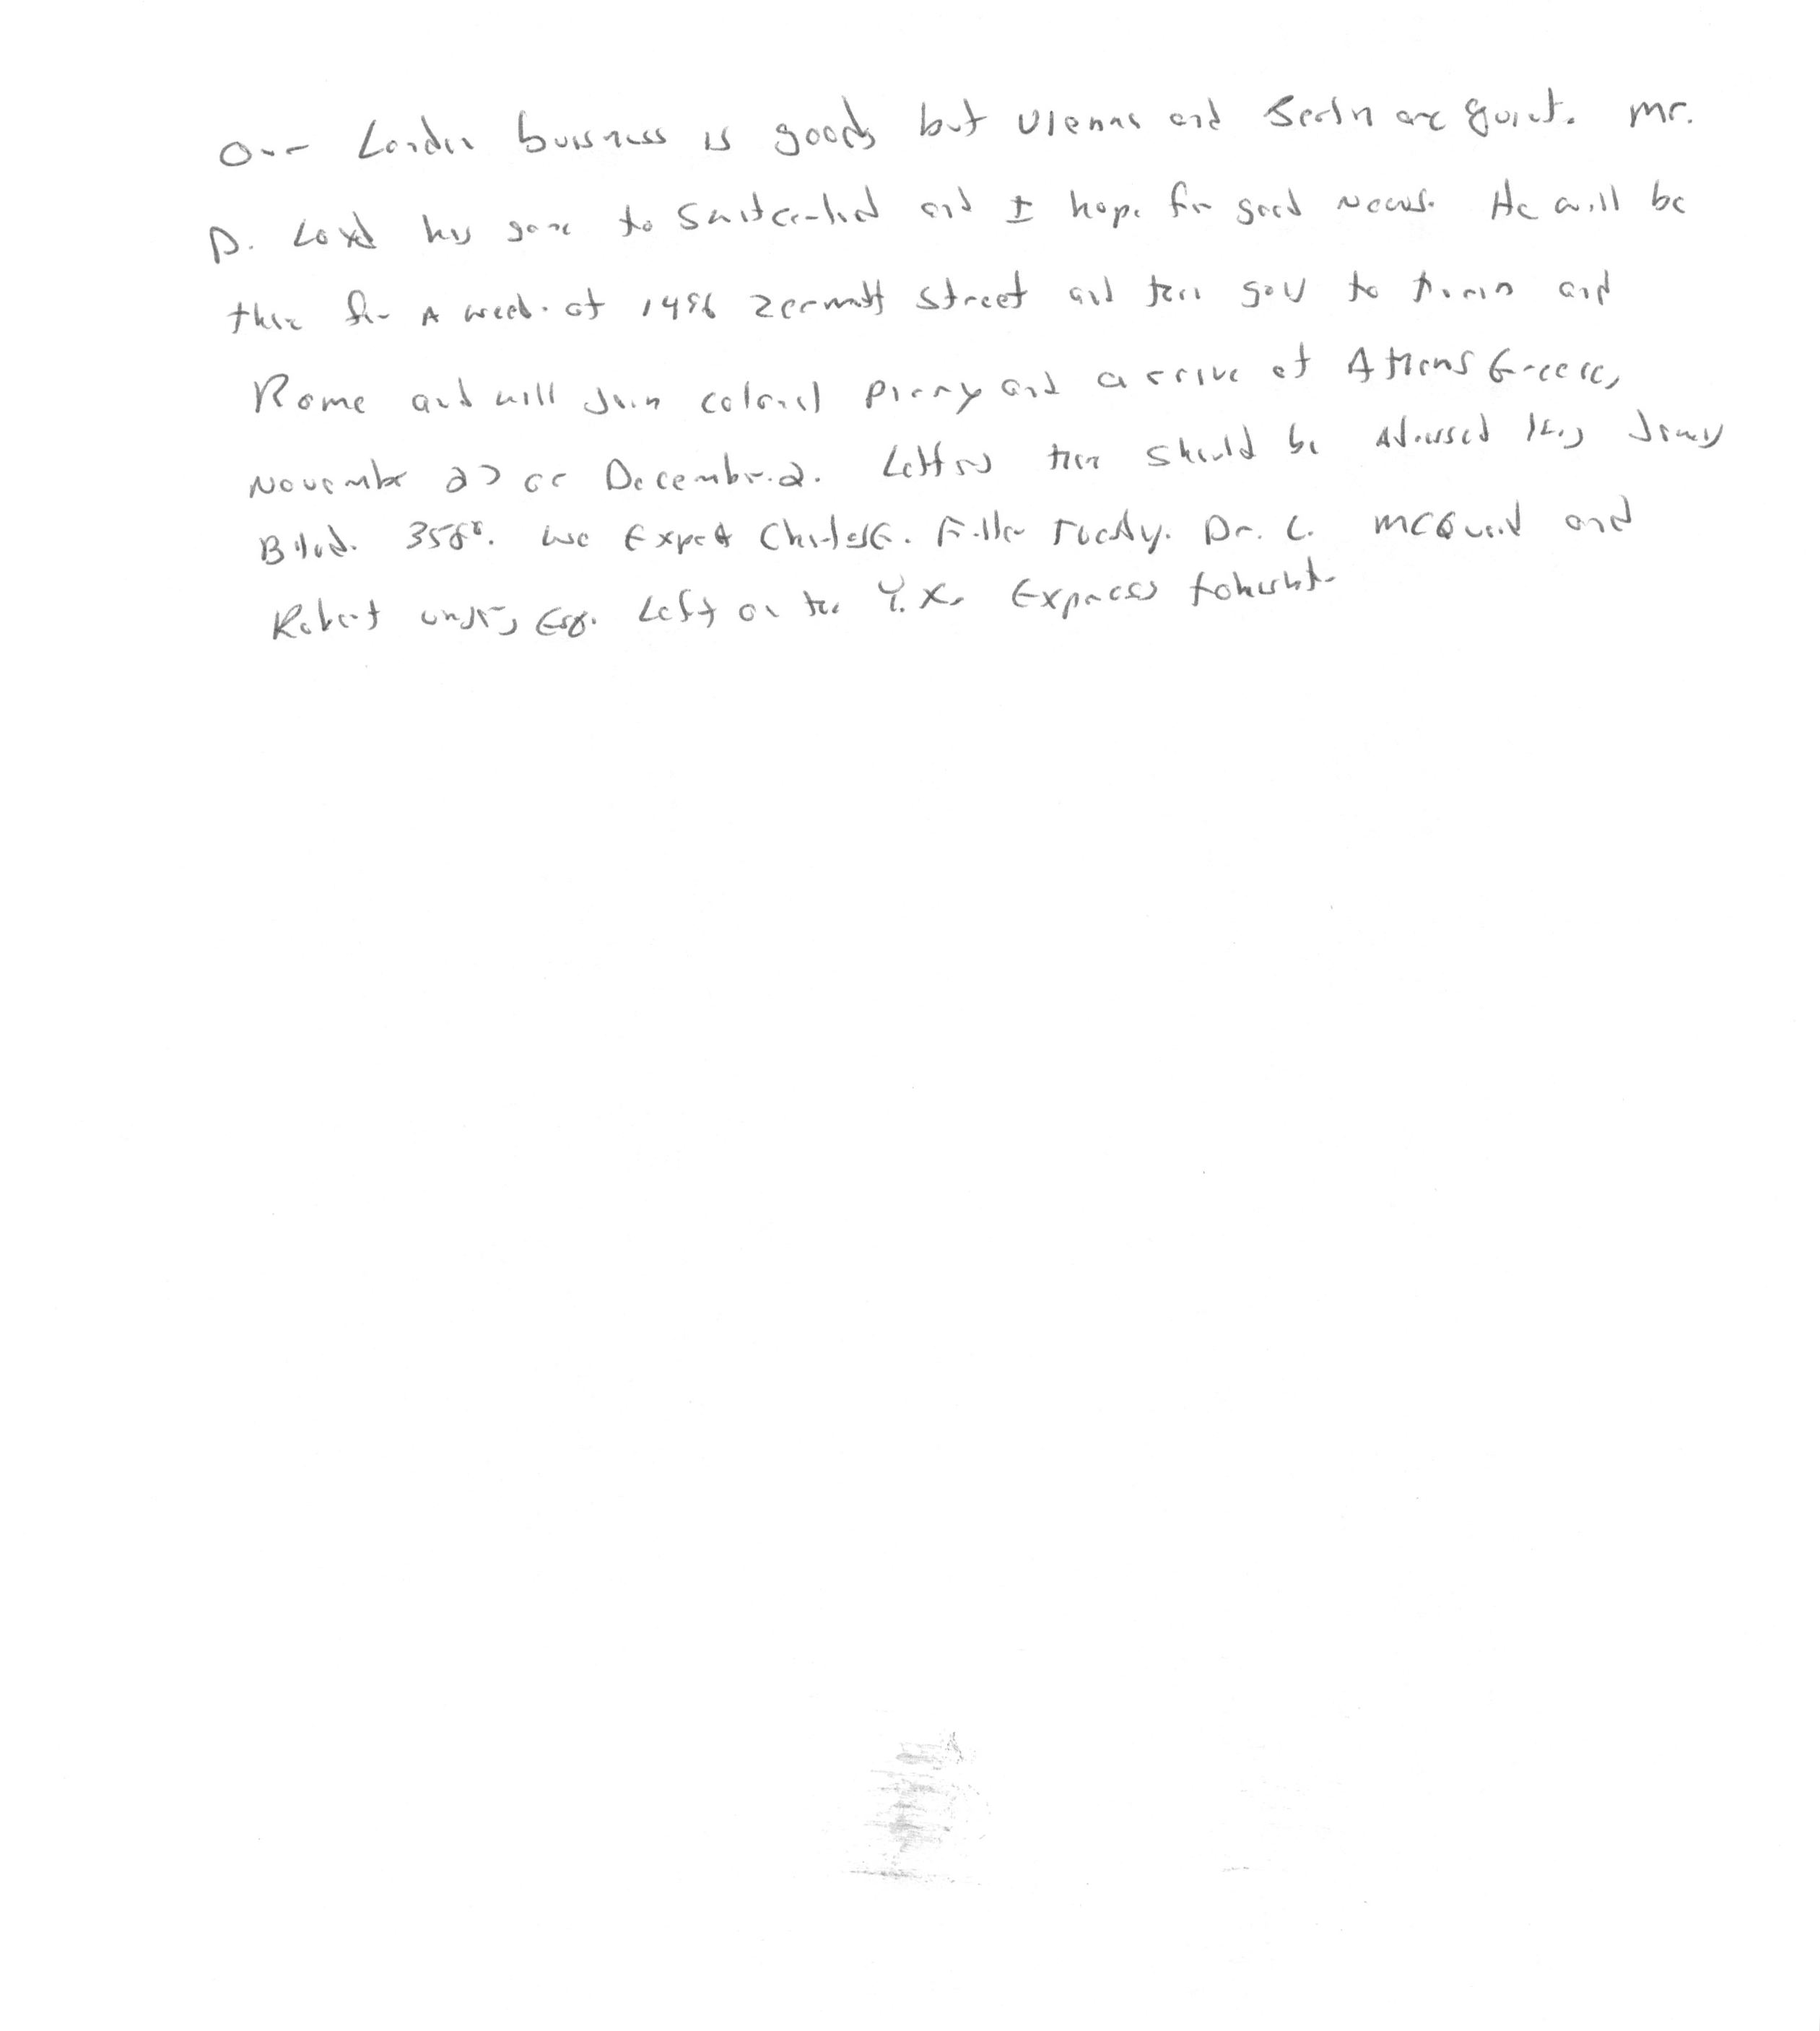 Our London buisness is good, but Vienna and Berlin are quiet. Mr.
D. Loyd has gone to Switzerland and I hope for good news. He will be
there for a week at 1496 Zermatt Street and then goes to Turin and
Rome and will Join colonel Parry and arrive at Athens Greece,
November 27 or December 2. Letters there should be Adressed King James
Blvd. 3580. We Expect Charles E. Fuller Tuesday. Dr. L. McQuaid and
Robert Unger, Esq. Left on the Y.X. Express tonight.